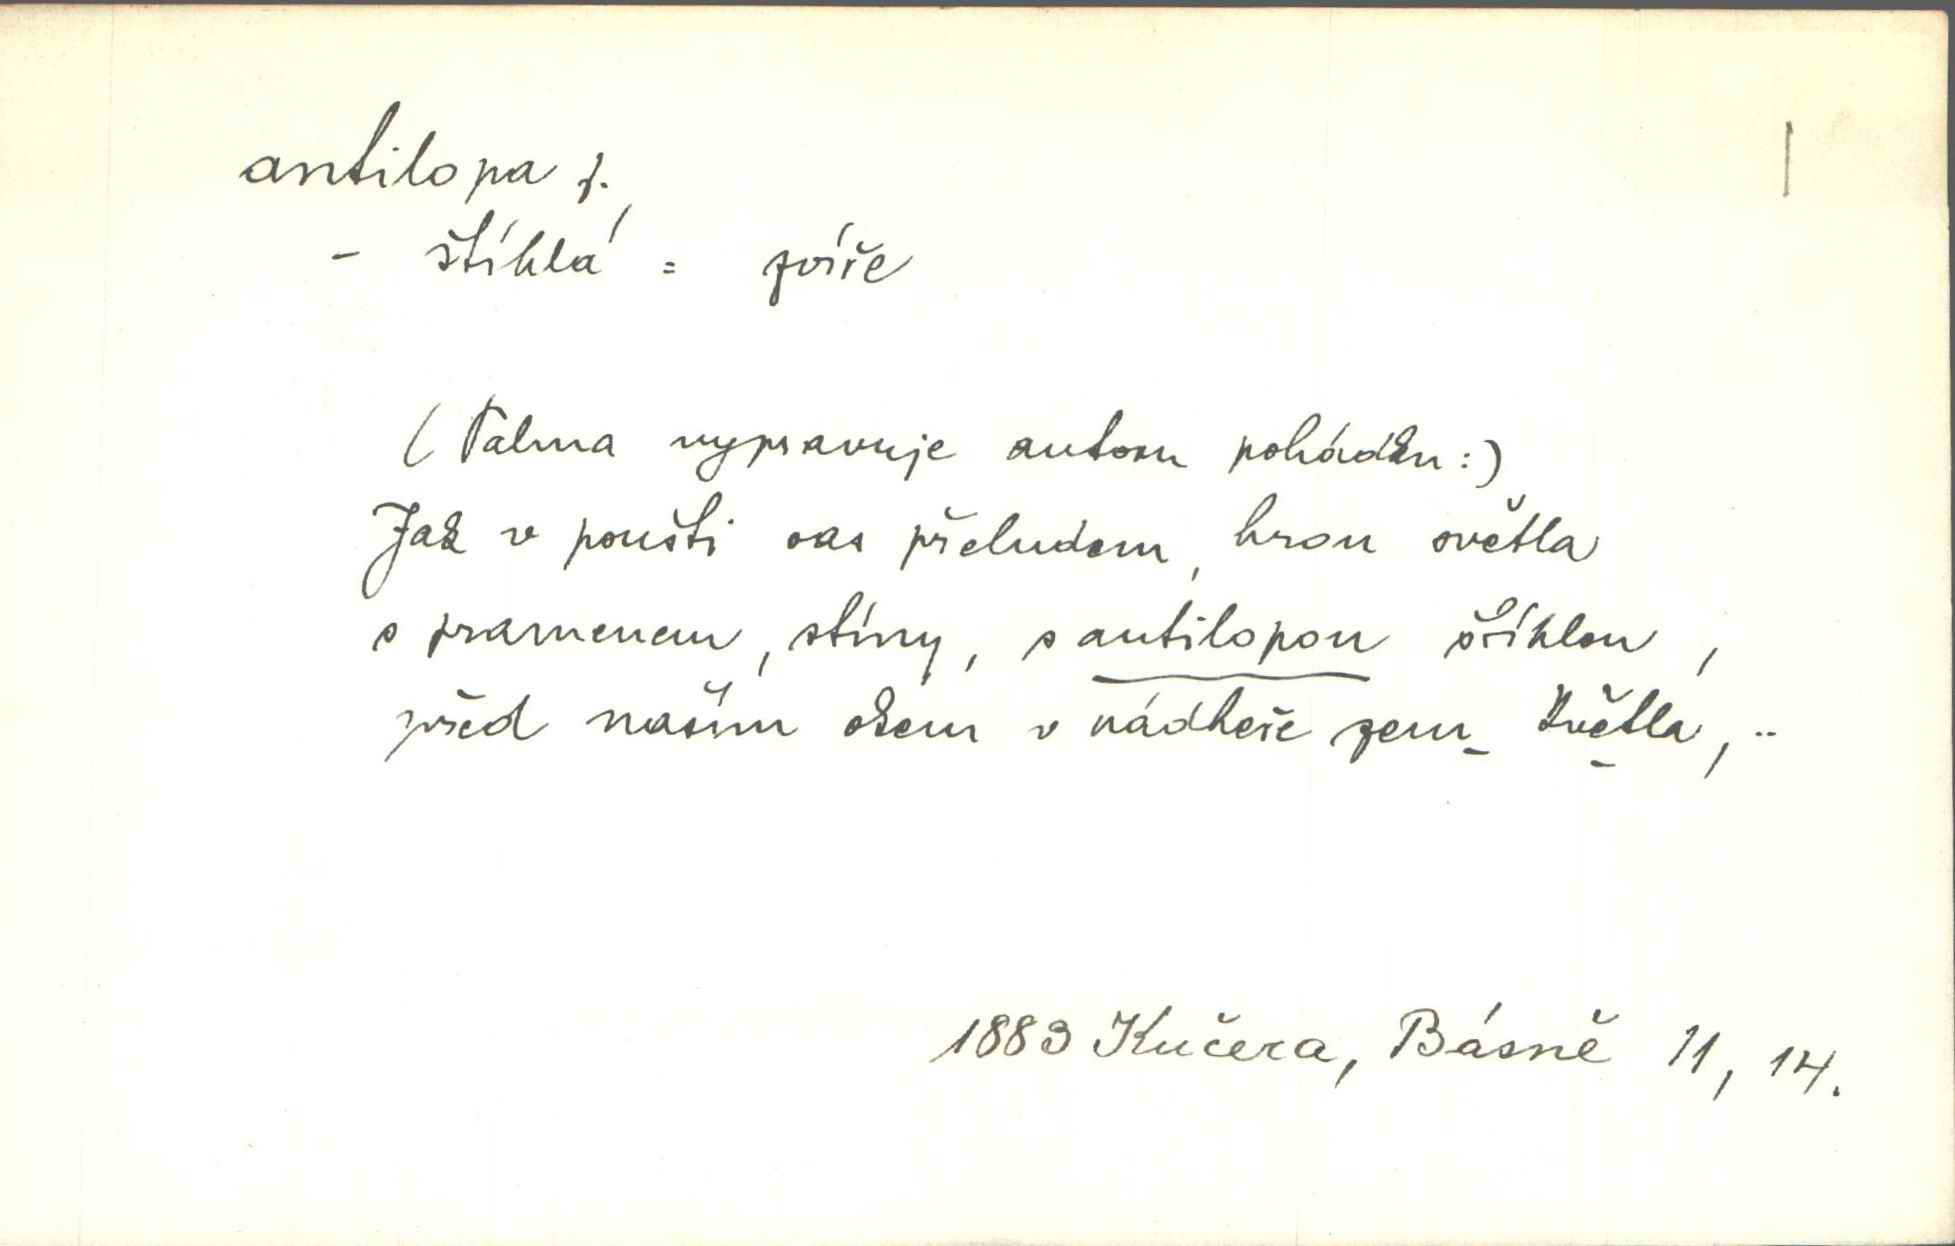 antilopa f.
- štíhlá = zvíře
(Palma vypravuje autoru pohádku:)
Jak v poušti oas přeludem, hrou světla
s pramenem, stíny, s antilopou štíhlou,
před naším okem v nádheře zem zkvětla, ..
1883 Kučera, Básně 11, 14.